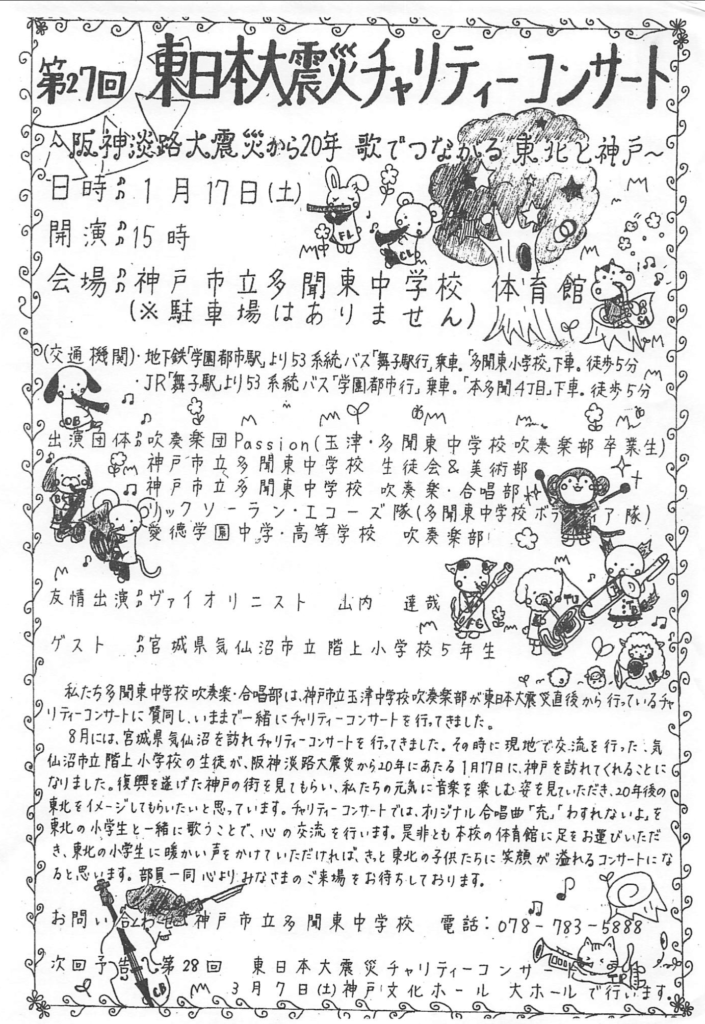 第27回 東日本大震災チャリティーコンサート
～阪神淡路大震災から20年 歌でつながる 東北と神戸～
日時♫1月17日(土)
開演♫15時
会場♫神戸市立多聞東中学校 体育館
(※駐車場はありません)
(交通機関)・地下鉄「学園都市駅」より53系統バス「舞子駅行」乗車。「多聞東小学校」下車。徒歩5分
・JR「舞子駅」より53系統バス「学園都市行」乗車。「本多聞4丁目」下車。徒歩5分
出演団体♫吹奏楽団Passion(玉津・多聞東中学校吹奏楽部卒業生)
神戸市立多聞東中学校 生徒会&美術部
神戸市立多聞東中学校 吹奏楽・合唱部
リックソーラン・エコーズ隊(多聞東中学校ボランティア隊)
愛徳学園中学・高等学校 吹奏楽部
友情出演♫ヴァイオリニスト 山内 達哉
ゲスト ♫宮城県気仙沼市立階上小学校5年生
私たち多聞東中学校吹奏楽・合唱部は、神戸市立玉津中学校吹奏楽部が東日本大震災直後から行っているチャ
リティーコンサートに賛同し、いままで一緒にチャリティーコンサートを行ってきました。
8月には、宮城県気仙沼を訪れチャリティーコンサートを行ってきました。その時に現地で交流を行った、気
仙沼市立階上小学校の生徒が、阪神淡路大震災から20年にあたる1月17日に、神戸を訪れてくれることに
なりました。復興を遂げた神戸の街を見てもらい、私たちの元気に音楽を楽しむ姿を見ていただき、20年後の
東北をイメージしてもらいたいと思っています。チャリティーコンサートでは、オリジナル合唱曲「充」「わすれないよ」を
東北の小学生と一緒に歌うことで、心の交流を行います。是非とも本校の体育館に足をお運びいただ
き、東北の小学生に暖かい声をかけていただければ、きっと東北の子供たちに笑顔が溢れるコンサートにな
ると思います。部員一同心よりみなさまのご来場をお待ちしております。
お問い合わせ♫神戸市立多聞東中学校 電話:078-783-5888
次回予告♫第28回 東日本大震災チャリティーコンサート
3月7日(土)神戸文化ホール 大ホールで行います。
FL
CL
B
SA
OB
FG
TU
B
HR
TP
CB